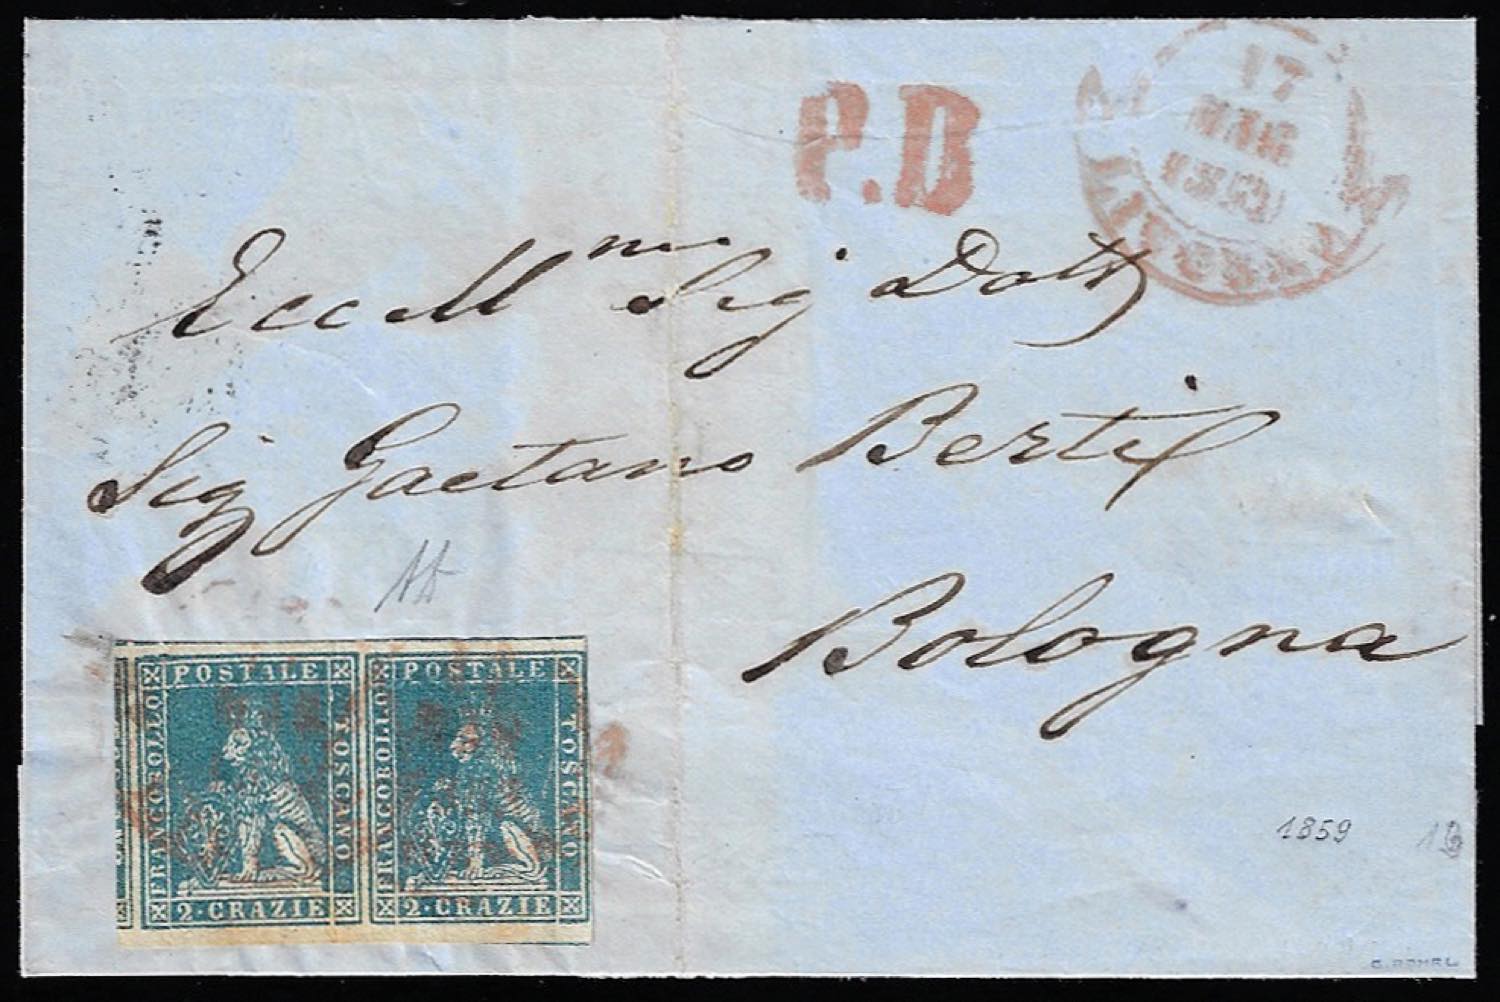 17
MAG
1859
P.D
Ecc.Mo Sig. Dott
Sig Gaetano Berti
Bologna
POSTALE
FRANCOBOLLO
TOSCANO
2·CRAZIE
POSTALE
FRANCOBOLLO
TOSCANO
2·CRAZIE
1859